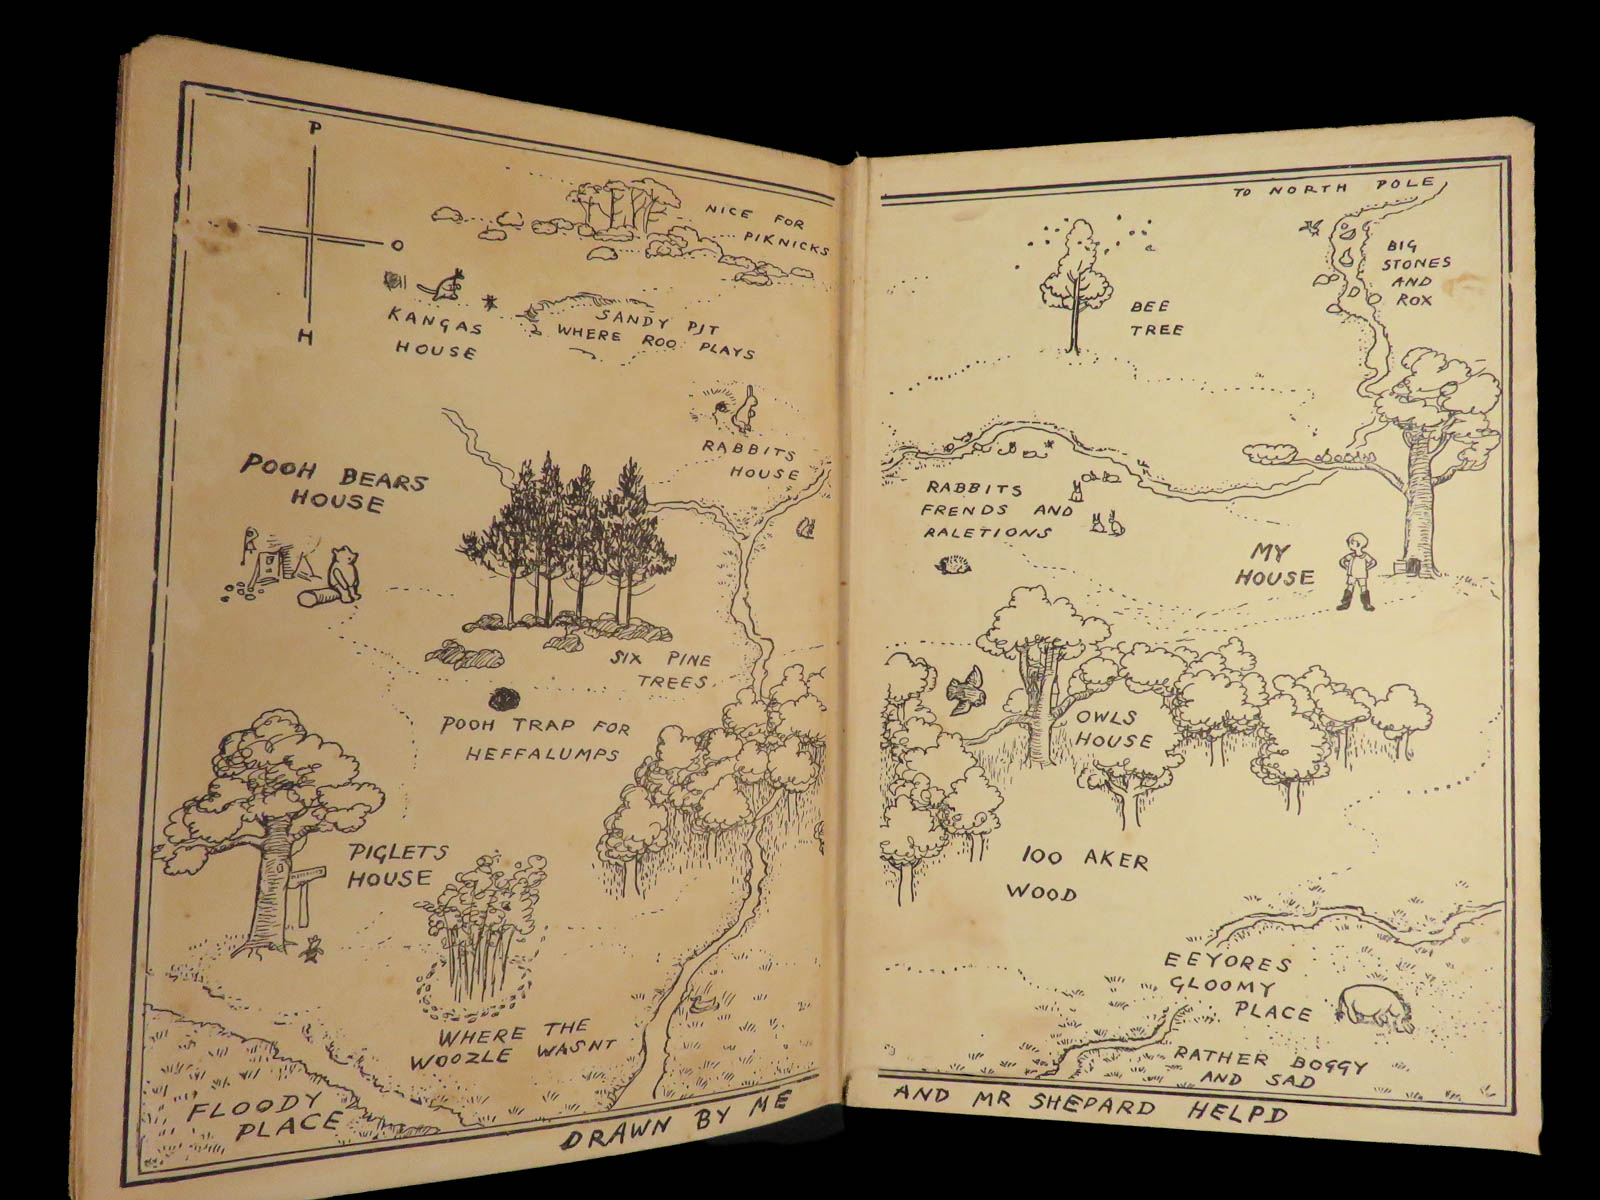 P
O
H
NICE FOR
PIKNICKS
KANGAS
HOUSE
SANDY PIT
WHERE ROO PLAYS
RABBITS
HOUSE
POOH BEARS
HOUSE
SIX PINE
TREES
POOH TRAP FOR
HEFFALUMPS
PIGLETS
HOUSE
WHERE THE
WOOZLE WASNT
FLOODY
PLACE
DRAWN BY ME
TO NORTH POLE
BIG
STONES
AND
ROX
BEE
TREE
RABBITS
FRENDS AND
RALETIONS
MY
HOUSE
OWLS
HOUSE
100 AKER
WOOD
EEYORES
GLOOMY
PLACE
RATHER BOGGY
AND SAD
AND MR SHEPARD HELPD